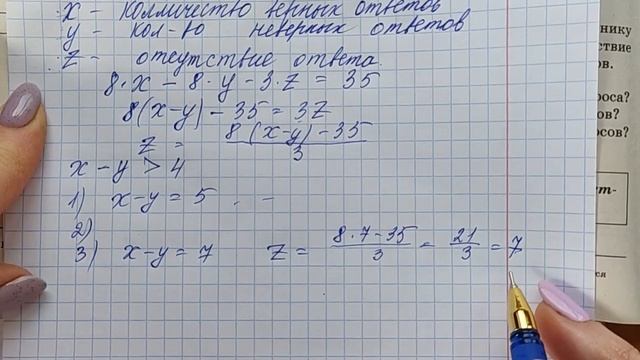 x - колличество верных ответов
y - кол-во неверных ответов
z - отсутствие ответа.
8·x - 8·y - 3·z = 35
8(x-y) - 35 = 3z
z = 8(x-y)-35 / 3
x - y > 4
1) x-y = 5 . -
2)
3) x-y = 7 z = 8·7-35 / 3 = 21 / 3 = 7
нику
ствие
ов.
роса?
ов?
росов?
ут-